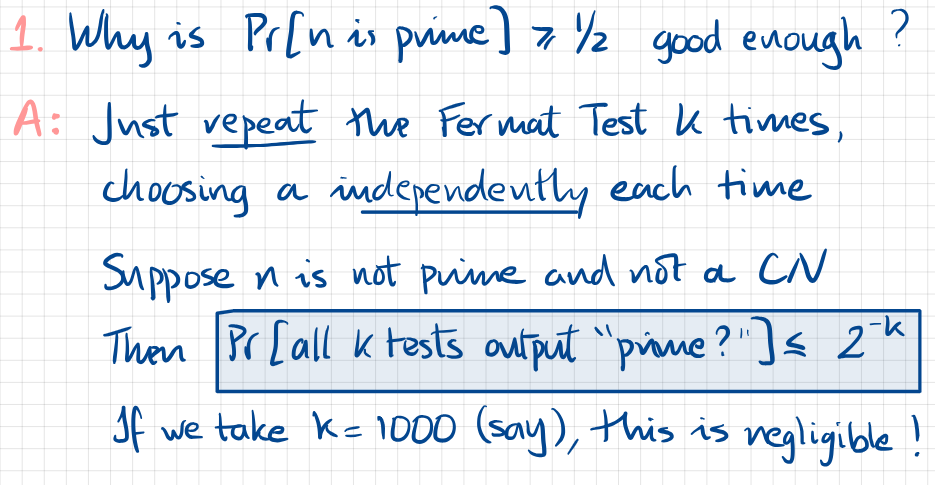 1. Why is Pr[n is prime] ⩾ 1/2 good enough?
A: Just repeat the Fermat Test k times,
choosing a independently each time
Suppose n is not prime and not a CN
Then Pr[all k tests output "prime?"] ≤ 2^{-k}
If we take k = 1000 (say), this is negligible!